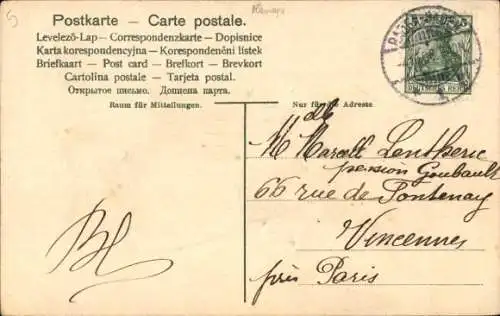 Postkarte - Carte postale.
Levelező-Lap - Correspondenzkarte - Dopisnice
Karta korespondencyjna - Korespondenční lístek
Briefkaart - Post card - Brefkort - Brevkort
Cartolina postale - Tarjeta postal.
Открытое письмо. Дописна карта.
Raum für Mitteilungen.
Nur für die Adresse.
DEUTSCHES REICH
M Marcell Lentheric
pension Goubault
66 rue de Fontenay
Vincennes
près Paris
BH